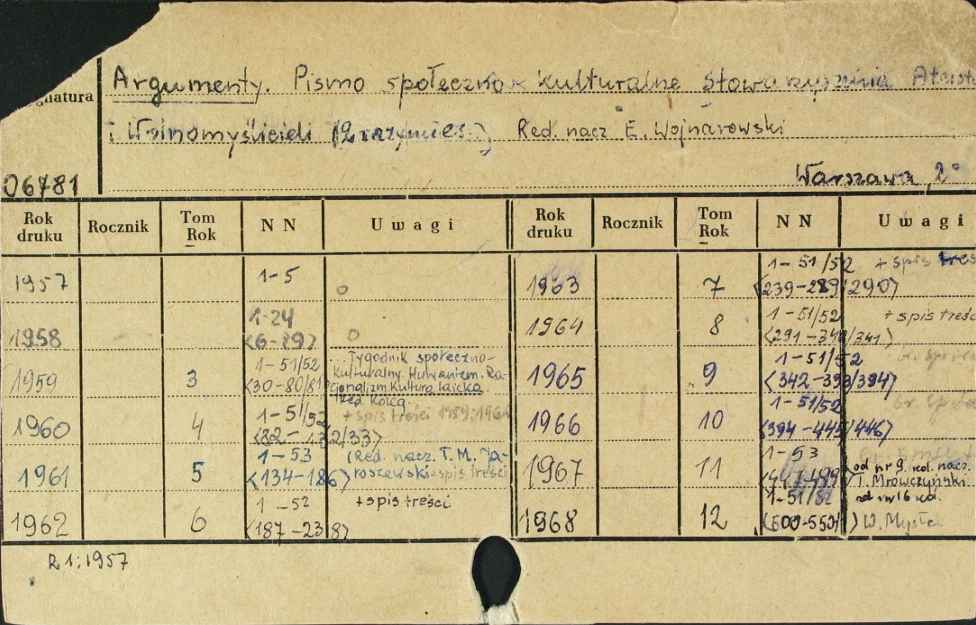 Argumenty. Pismo społeczno-kulturalne Stowarzyszenia Ateist
i Wolnomyślicieli (2 razymies.), Red. nacz E. Wojnarowski
06781
Warszawa, 2°
Rok druku Rocznik Tom Rok NN Uwagi Rok druku Rocznik Tom Rok NN Uwagi
1957 1-5
1958 1-24 <6-29>
1959 3 1-51/52 <30-80/81> Tygodnik społeczno-
kulturalny. Humaniem. Ra-
cjonalizm Kultura laicka.
Red Koleg.
1960 4 1-51/52 <82-132/33> + spis treści 1959:1960
1961 5 1-53 <134-186> (Red. nacz. T. M. Ja-
roszewski + spis treści
1962 6 1-52 <187-238> + spis treści
1963 7 1-51/52 <239-289/290> + spis treś
1964 8 1-51/52 <291-340/341> + spis treśc
1965 9 1-51/52 <342-393/394>
1966 10 1-51/52 <394-445/446>
1967 11 1-53 <447-499> od nr 9. kol. nacz.
T. Mrówczyński
od nr 16 kol.
1968 12 1-51/52 W. Mysłek
R 1:1957